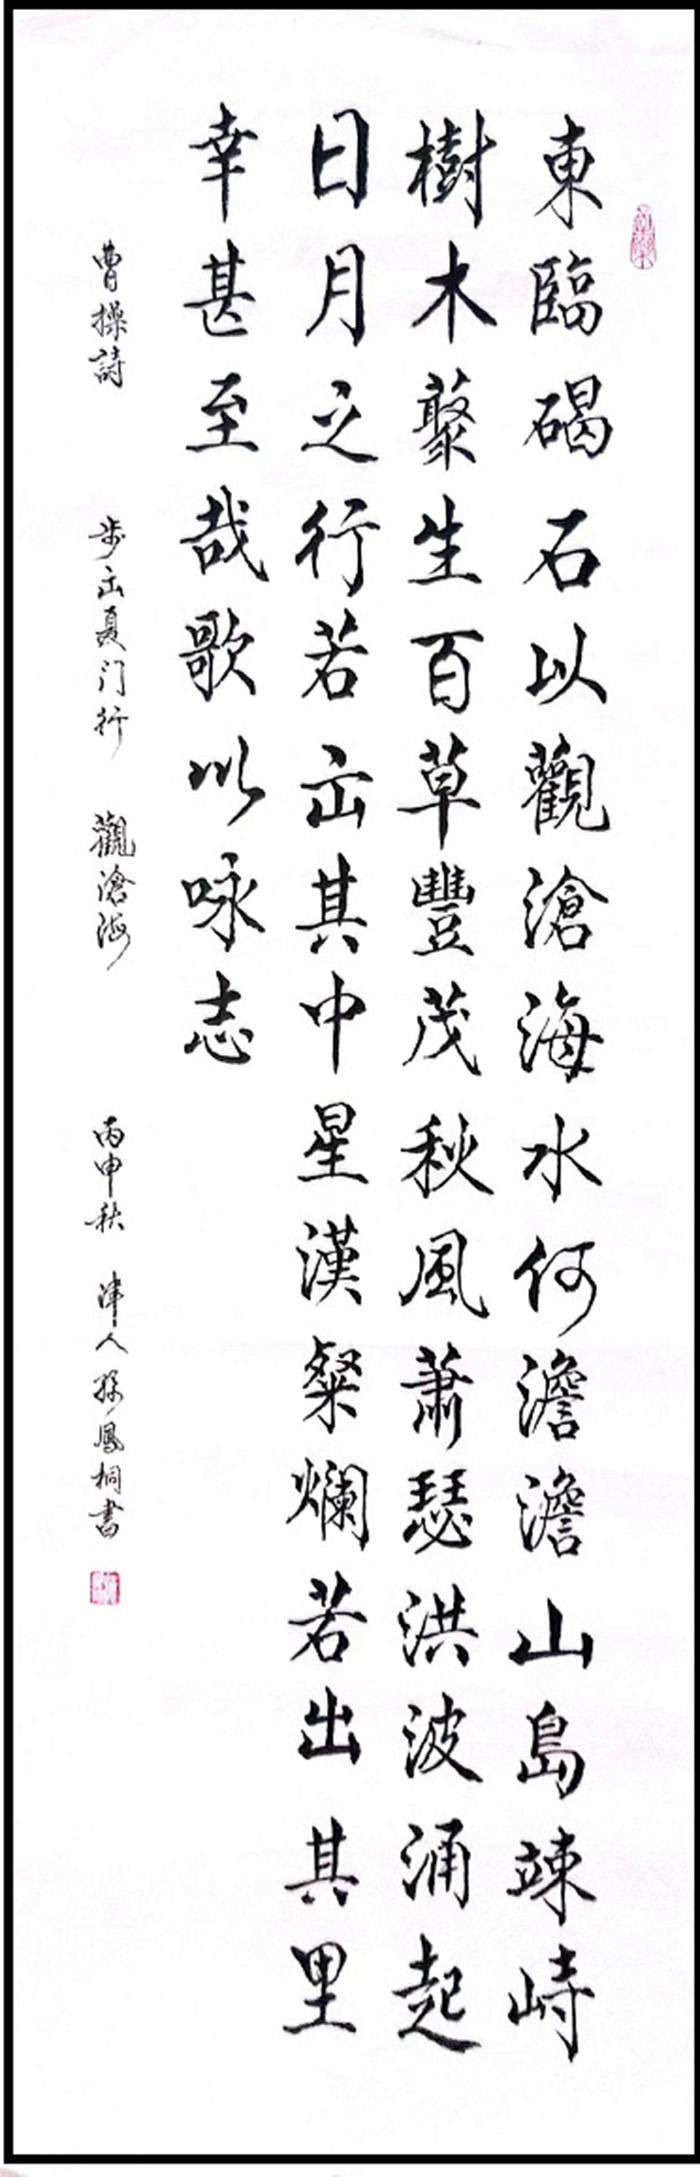 東臨碣石以觀滄海水何澹澹山島竦峙
樹木藂生百草豐茂秋風蕭瑟洪波涌起
日月之行若出其中星漢粲爛若出其里
幸甚至哉歌以咏志
曹操詩 步出夏门行 觀滄海 丙申秋 津人孫鳳桐書